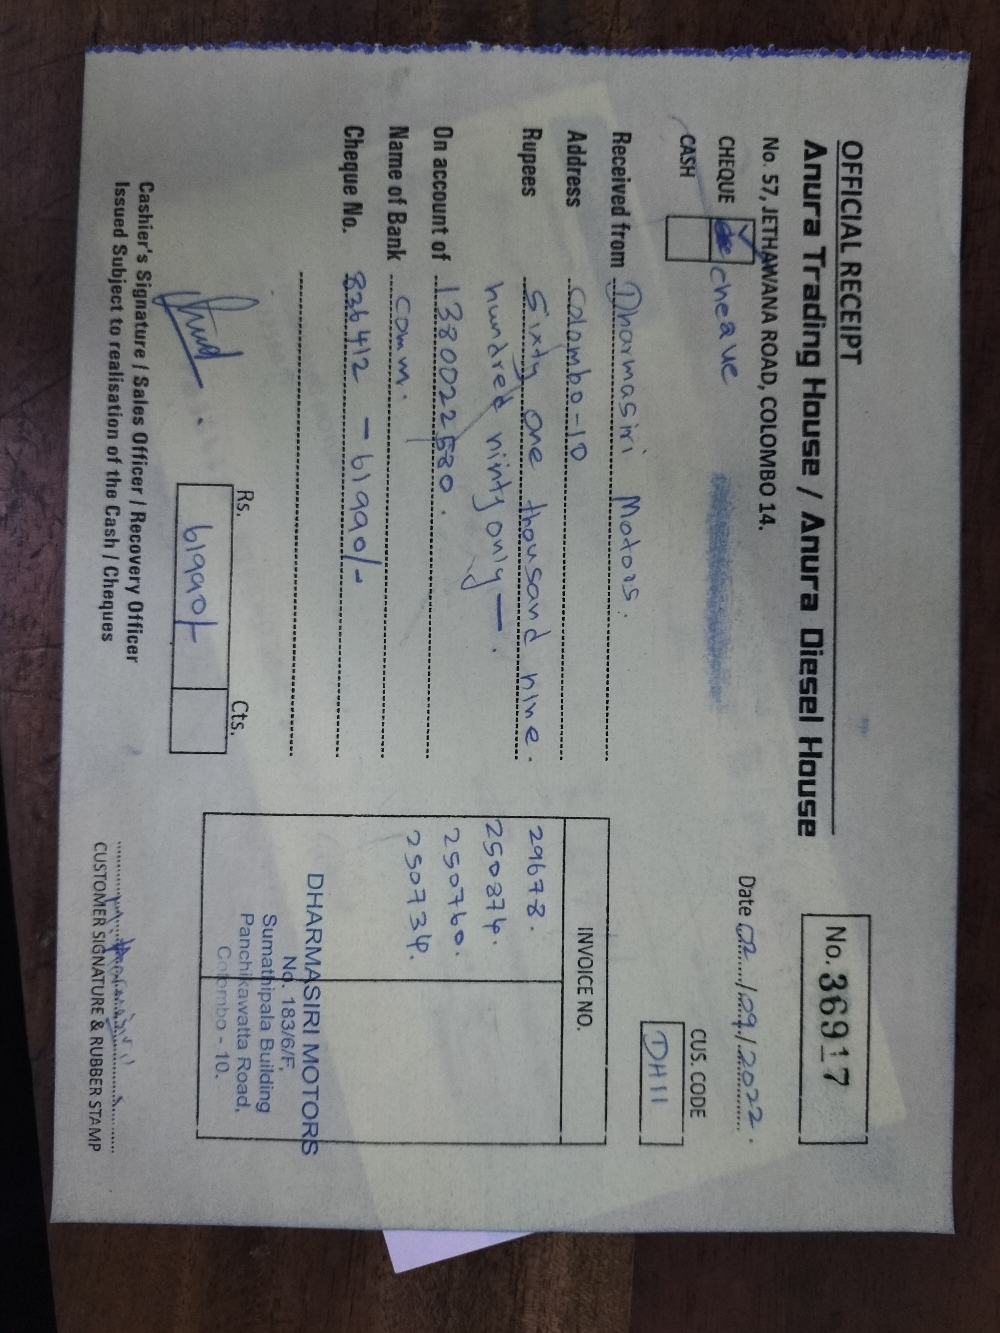 OFFICIAL RECEIPT
Anura Trading House / Anura Diesel House
No. 36917
No. 57, JETHAWANA ROAD, COLOMBO 14.
Date 02/09/2022.
CHEQUE cheque
CASH
CUS. CODE
DH11
Received from Dharmasiri Motors.
Address colombo-10
Rupees Sixty one thousand nine
hundred ninty only —.
On account of 1380022580.
Name of Bank comm.
Cheque No. 836412 - 61990/-
INVOICE NO.
29678.
250874.
250760.
250734.
Rs. Cts.
61990/-
DHARMASIRI MOTORS
No. 183/6/F,
Sumathipala Building
Panchikawatta Road,
Colombo - 10.
Cashier's Signature / Sales Officer / Recovery Officer
Issued Subject to realisation of the Cash / Cheques
CUSTOMER SIGNATURE & RUBBER STAMP